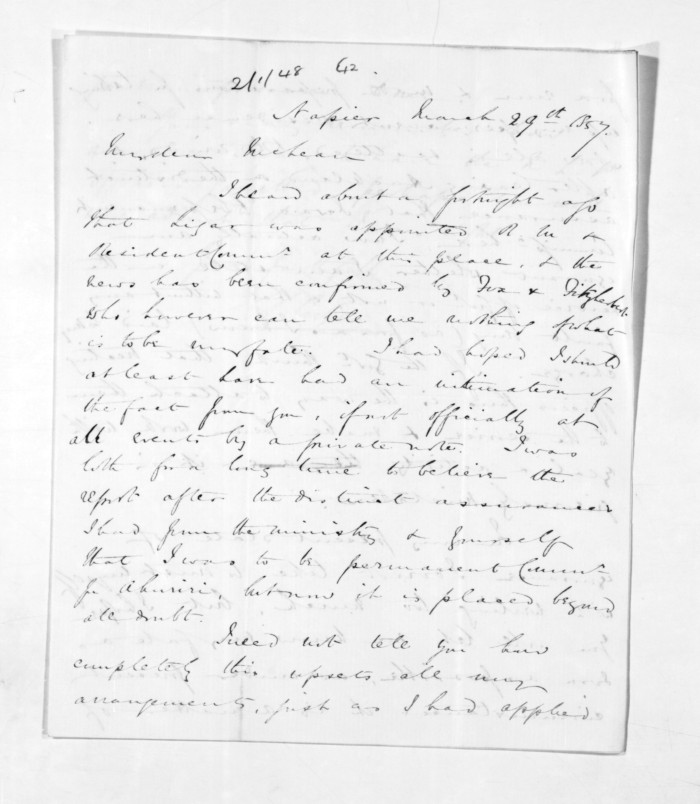 2/1/48 42.
Napier March 29th 1857
My dear McLean
I heard about a fortnight ago
that Ligar was appointed R M &
Resident Commr at this place, & the
news has been confirmed by Fox & Fitzherbert
who however can tell me nothing of what
is to be my fate. I had hoped I should
at least have had an intimation of
the fact from you, if not officially at
all events by a private note. I was
loth for a long time to believe the
report after the distinct assurances
I had from the ministry & yourself
that I was to be permanent Commr
for Ahuriri, but now it is placed beyond
all doubt.
I need not tell you how
completely this upsets all my
arrangements, just as I had applied